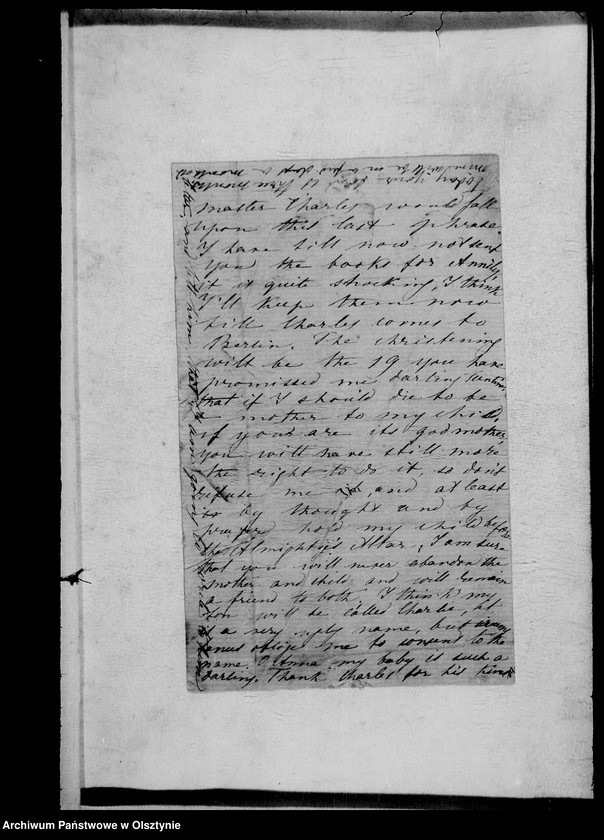 matter Charles would fall
upon this last phrase.
I have till now not sent
you the books for
it is quite shocking, I think
I'll keep them now
till Charles comes to
Berlin. The christening
will be the 19 you have
promissed me darling
that if I should die to be
a mother to my child,
if your are its godmother,
you will have still more
the right to do it, so dont
refuse me and at least
by thought and by
prayer hold my child before
the Almighty's Altar, I am sure
that you will never abandon the
mother and child and will remain
a friend to both, I think my
son will be called Charlie,
is a very ugly name, but
oblige me to consent to the
name. O Anna my baby is such a
darling. Thank Charles for his
and tell him that I am going to
Archiwum Państwowe w Olsztynie